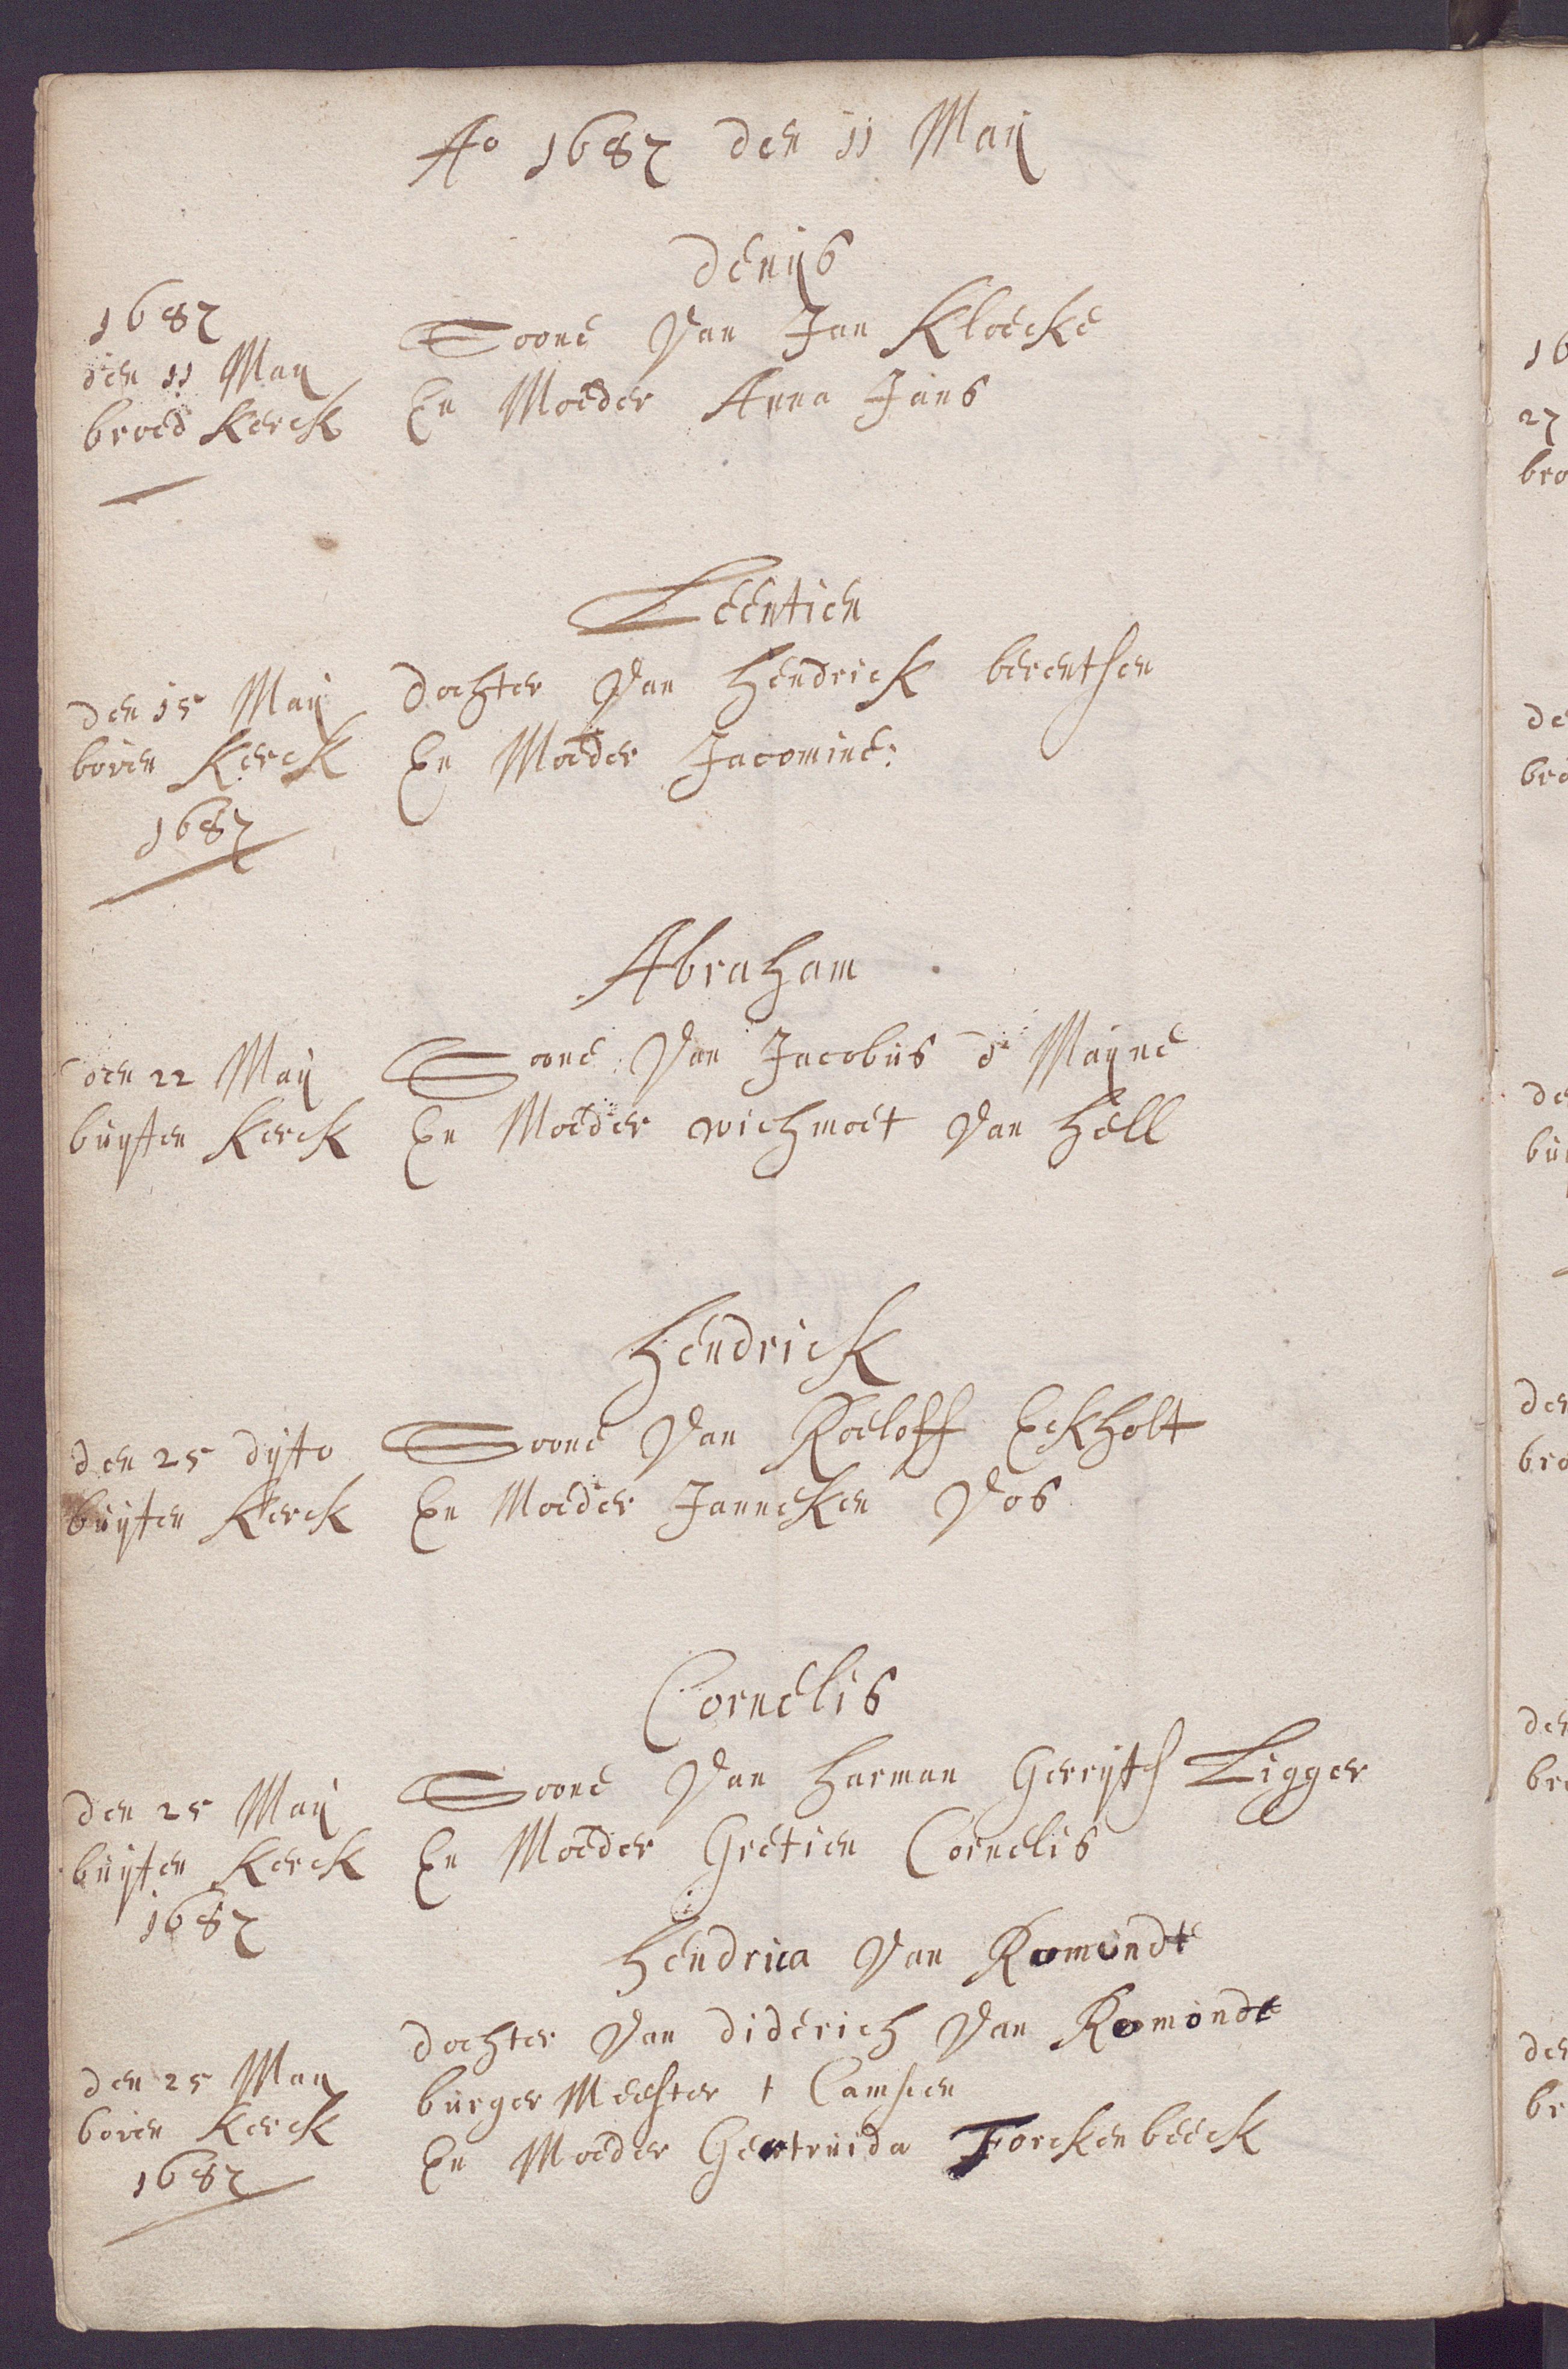 Ao 1687 den 11 Maij
denijs
1687
den 11 Maij
broed Kerck
Soone Van Jan Kloecke
En Moeder Anna Jans
Leentien
den 15 Maij
boven Kerck
1687
dochter Van Hendrick berentsen
En Moeder Jacomine:
Abraham
den 22 Maij
buyten Kerck
Soone Van Jacobus d Mayne
En Moeder wichmoet Van Hell
Hendrick
den 25 dyto
buyten Kerck
Soone Van Roeloff Eckholt
En Moeder Janneken Vos
Cornelis
den 25 Maij
buyten Kerck
1687
Soone Van Harman Gerryts Ligger
En Moeder Gretien Cornelis
Hendrica Van Romondt
den 25 Maij
boven Kerck
1687
dochter Van diderich Van Romondt
burger Meester t Campen
En Moeder Geertruida Forckenbeeck